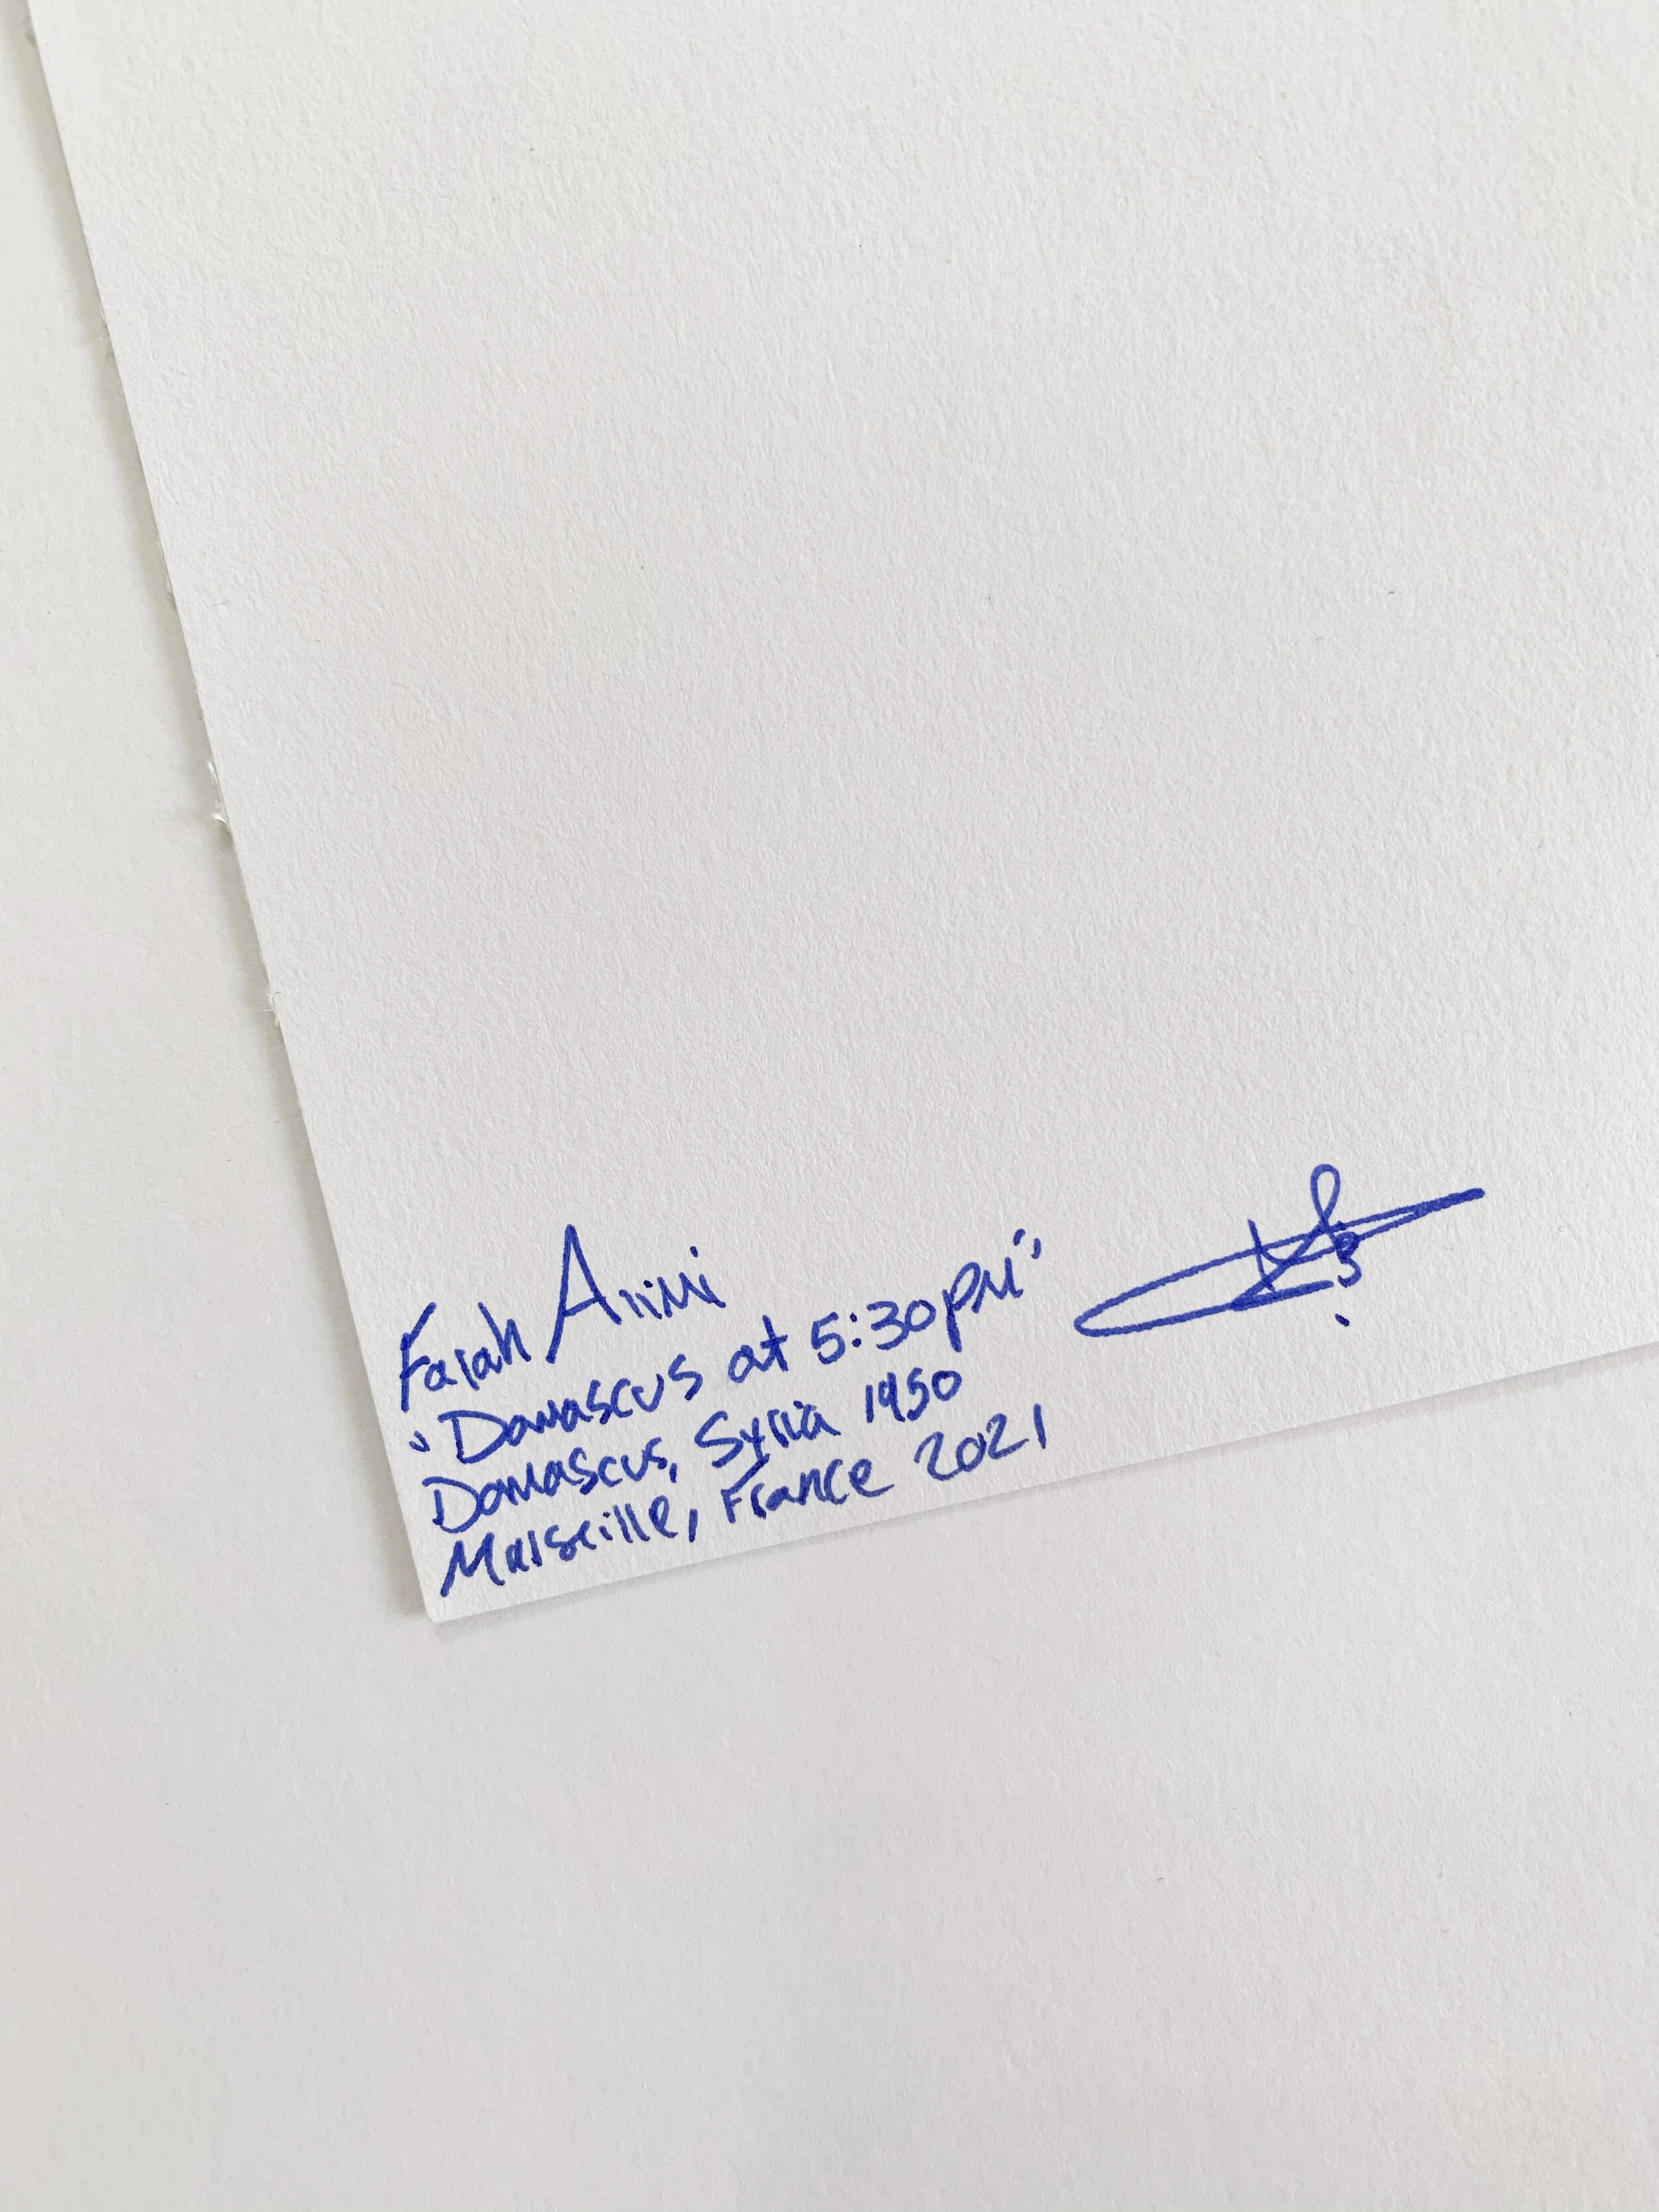 Farah
"Damascus at 5:30PM"
Damascus, Syria 1950
Marseille, France 2021